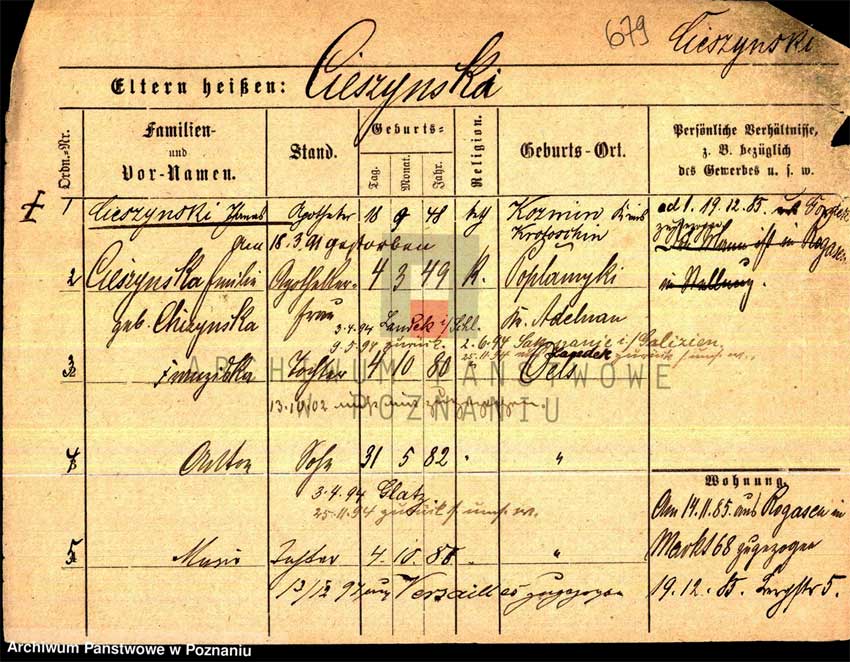 679 Cieszynski
Eltern heißen: Cieszynska
Ordn.-Nr.
Familien- und Vor-Namen.
Stand.
Geburts-
Tag. Monat. Jahr.
Religion.
Geburts-Ort.
Persönliche Verhältnisse, z. B. bezüglich des Gewerbes u. s. w.
1 Cieszynski Apotheker 18 9 48 kath Kozmin Kreis Krotoschin
ad 1. 19.12.85.
zugezogen
Der Mann ist in
in Stellung.
am 18.3.91 gestorben
2 Cieszynska Emilie Apotheker- 4 3 49 K.
geb. Frau Kr. Adelnau
3.4.94 Landek i/Schl. 2.6.94 i/Galizien.
9.5.94 zurück. 25.11.94 zurück
3 Franziska Tochter 4 10 80 " Oels
13.10.02
4 Anton Sohn 31 5 82 " "
3.4.94 Glatz.
25.11.94 zurück
5 Marie Tochter 4. 10. "
Versailles zugezogen
Wohnung.
Am 14.11.85. aus Rogasen in
Markt 68 zugezogen
19.12.85. Bergstr 5.
ARCHIWUM PAŃSTWOWE
W POZNANIU
Archiwum Państwowe w Poznaniu